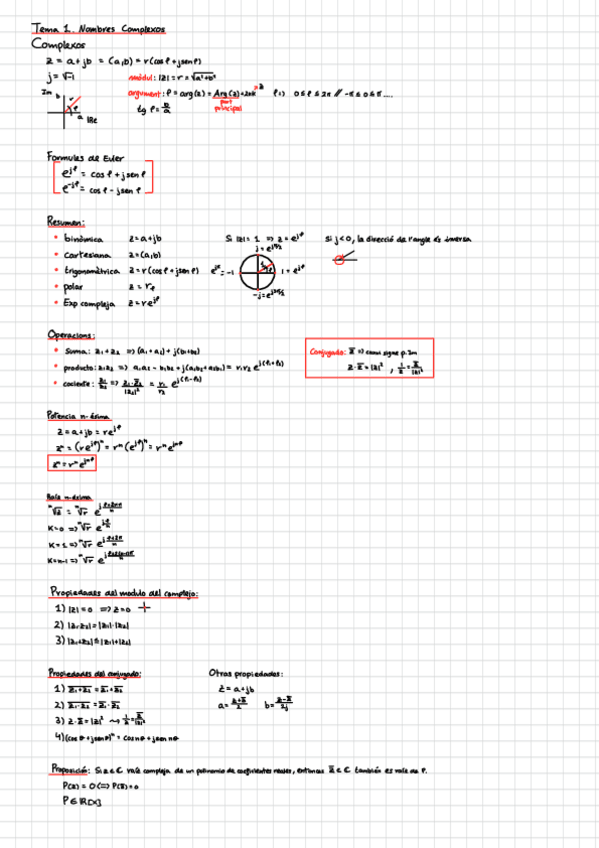 Tema 1. Nombres Complexos
Complexos
z = a+jb = (a,b) = r(cos φ + jsen φ)
j = √-1
mòdul: |z| = r = √a²+b²
Im b r φ a Re
argument: φ = arg(z) = Arg(z)+2πk
part principal
φ => 0 ≤ φ ≤ 2π // -π ≤ φ ≤ π....
tg φ = b/a
Formules de Euler
e^jφ = cos φ + jsen φ
e^-jφ = cos φ - jsen φ
Resumen:
• binòmica z = a+jb
• cartesiana z = (a,b)
• trigonomètrica z = r(cos φ + jsen φ)
• polar z = r_φ
• Exp compleja z = re^jφ
Si |z| = 1 => z = e^jφ
j = e^jπ/2
e^jπ = -1
-j = e^j3π/2
Si j<0, la direcció de l'angle és inversa
Operacions:
• Suma: z₁+z₂ => (a₁+a₂) + j(b₁+b₂)
• producto: z₁z₂ => a₁a₂ - b₁b₂ + j(a₁b₂+a₂b₁) = r₁r₂ e^j(φ₁+φ₂)
• cociente: z₁/z₂ => z₁·z̄₂/|z₂|² = r₁/r₂ e^j(φ₁-φ₂)
Conjugado: z̄ => canvi signe p.Im
z·z̄ = |z|² , 1/z = z̄/|z|²
Potencia n-ésima
z = a+jb = re^jφ
zⁿ = (re^jφ)ⁿ = rⁿ(e^jφ)ⁿ = rⁿe^jnφ
zⁿ = rⁿe^jnφ
Raíz n-ésima
ⁿ√z = ⁿ√r e^j(φ+2kπ)/n
K=0 => ⁿ√r e^jφ/n
K=1 => ⁿ√r e^j(φ+2π)/n
K=n-1 => ⁿ√r e^j(φ+2(n-1)π)/n
Propiedades del modulo del complejo:
1) |z| = 0 => z=0
2) |z₁z₂| = |z₁|·|z₂|
3) |z₁+z₂| ≤ |z₁|+|z₂|
Propiedades del conjugado:
1) z̄₁+z̄₂ = z̄₁+z̄₂
2) z̄₁·z̄₂ = z̄₁·z̄₂
3) z·z̄ = |z|² ⇝ 1/z = z̄/|z|²
4) (cos θ + jsen θ)ⁿ = cos nθ + jsen nθ
Otras propiedades:
z = a+jb
a = z+z̄/2 b = z-z̄/2j
Proposición: Si z ∈ C raíz compleja de un polinomio de coeficientes reales, entonces z̄ ∈ C también es raíz de P.
P(z) = 0 <=> P(z̄) = 0
P ∈ R[x]